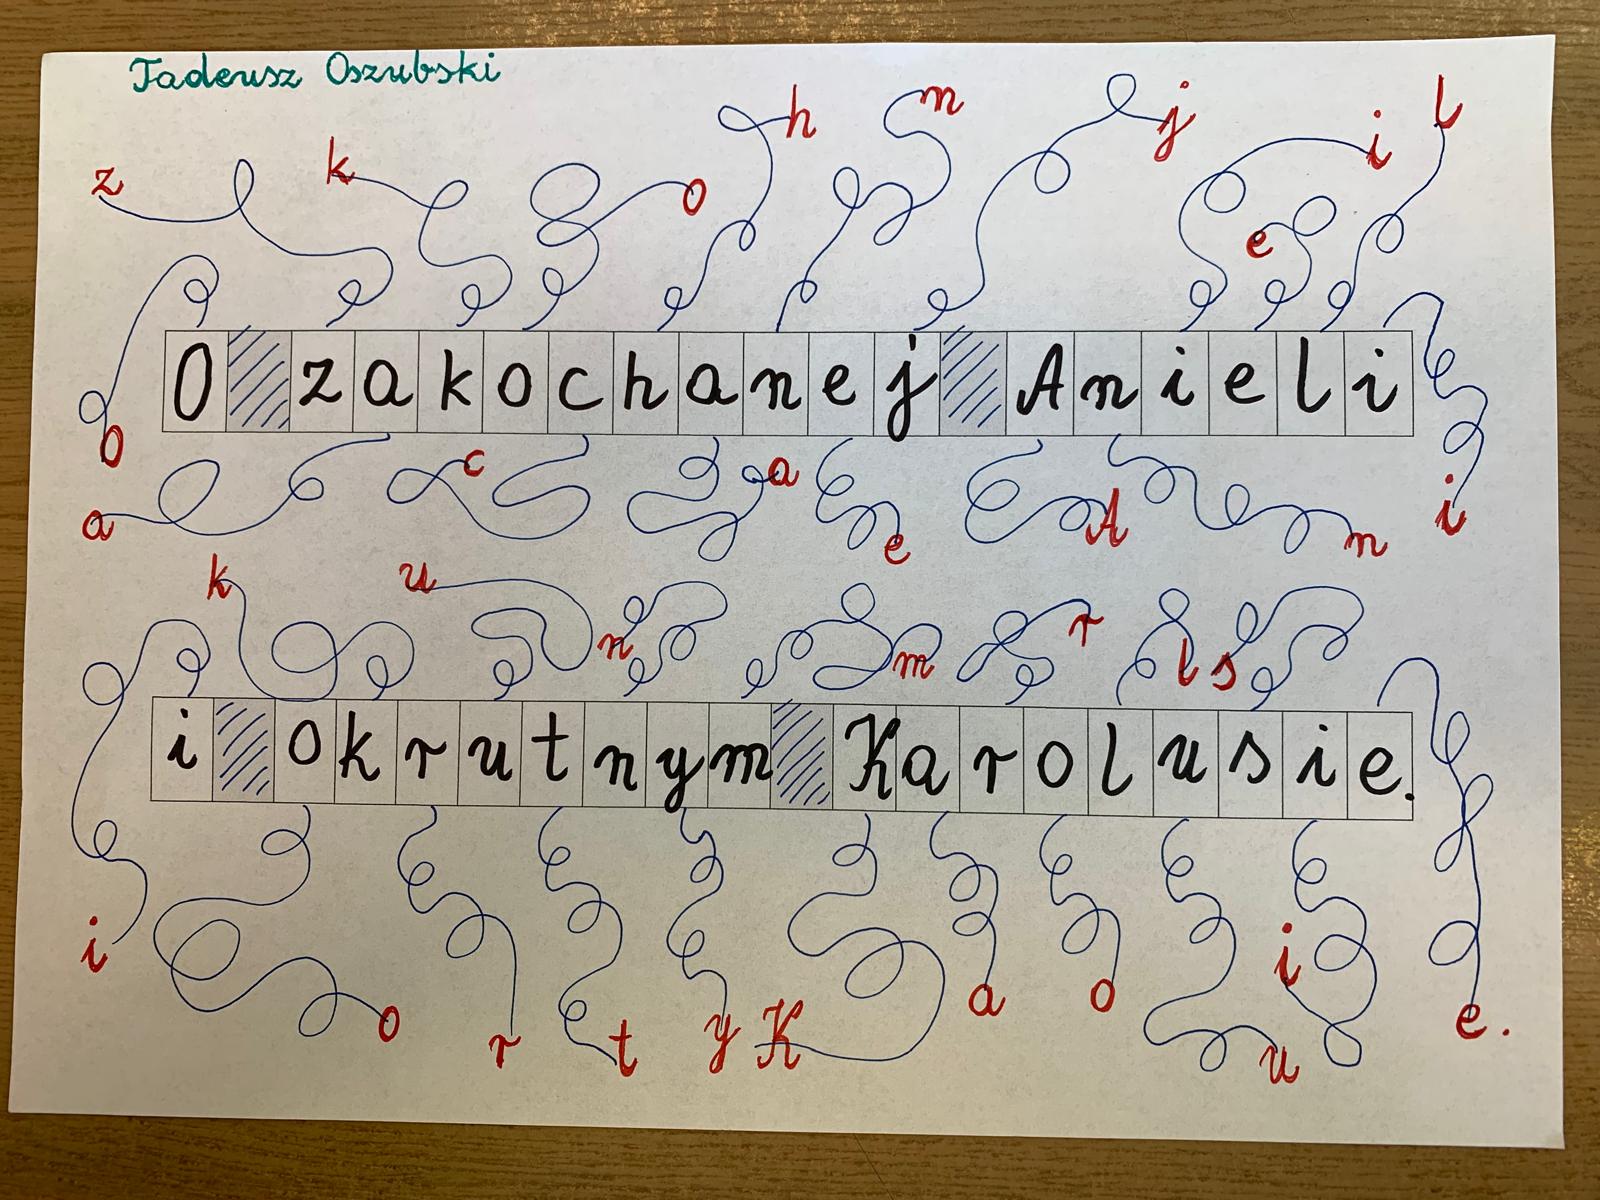 Tadeusz Oszubski
z k o h m j i e l
O zakochanej Anieli
o a c a e A n i
k u n m r l s
i okrutnym Karolusie.
i o r t y K a o u i e.